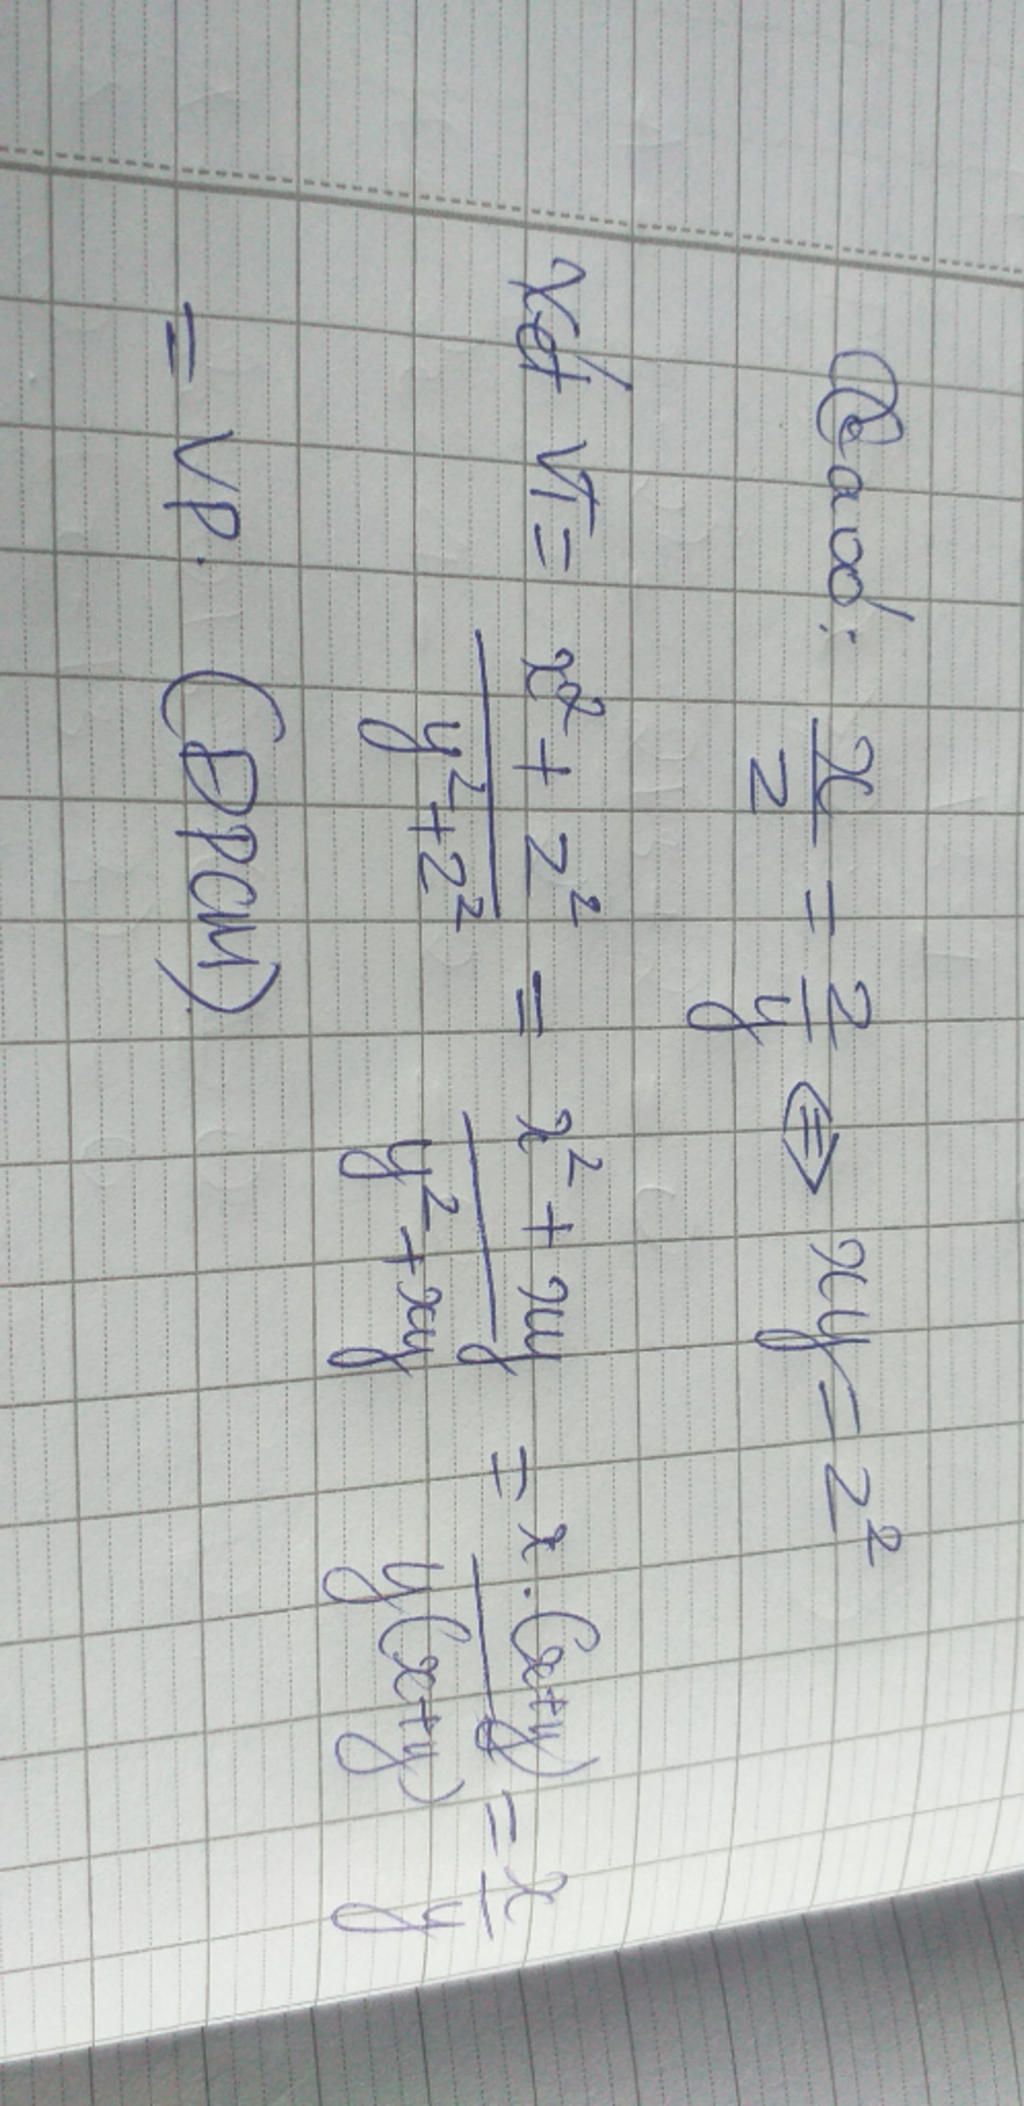 Ta có: x/z = z/y ⇔ xy = z²
Xét VT = (x² + z²)/(y² + z²) = (x² + xy)/(y² + xy) = x.(x+y)/y(x+y) = x/y
= VP. (ĐPCM)